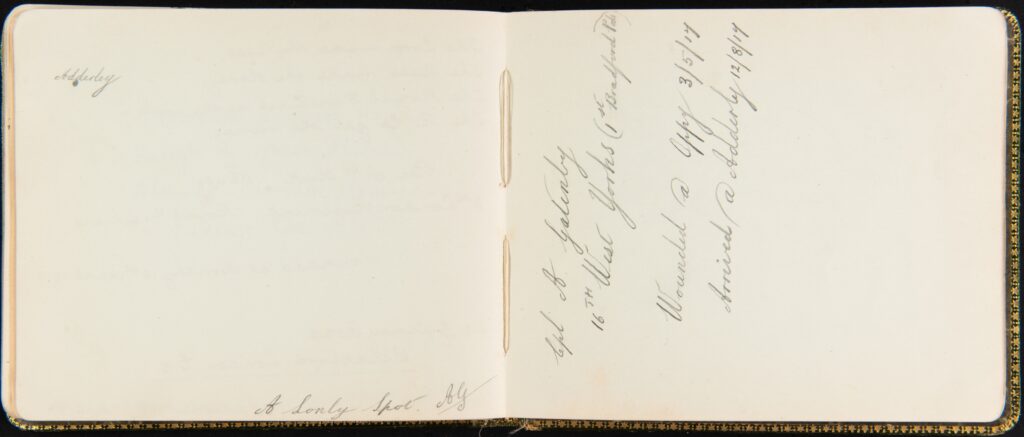 Adderley
A Lonly Spot. AG
Cpl A Gatenby
16TH West Yorks (1st Bradford Pals)
Wounded @ Oppy 3/5/17
Arrived @ Adderly 12/8/17